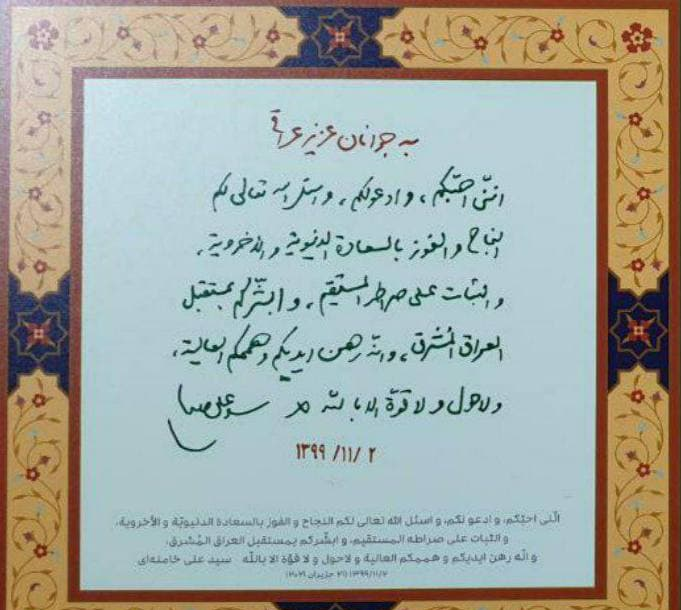 به جوانان عزیز عراقی
انّنی احبّکم، و ادعولکم، و اسئل الله تعالی لکم
النجاح و الفوز بالسعادة الدنیویة و الأخرویة،
و الثبات علی صراطه المستقیم، و ابشّرکم بمستقبل
العراق المُشرق، و انّه رهن ایدیکم و هممکم العالیة،
ولاحول و لا قوّة الا بالله
۱۳۹۹/۱۱/۲
انّنی احبّکم، و ادعو لکم، و اسئل الله تعالی لکم النجاح و الفوز بالسعادة الدنیویّة و الأخرویة،
و الثبات علی صراطه المستقیم، و ابشّرکم بمستقبل العراق المُشرق،
و انّه رهن ایدیکم و هممکم العالیة و لاحول و لا قوّة الا باللّه سید علی خامنه‌ای
۱۳۹۹/۱۱/۲ (۲۱ حزیران ۲۰۲۱)